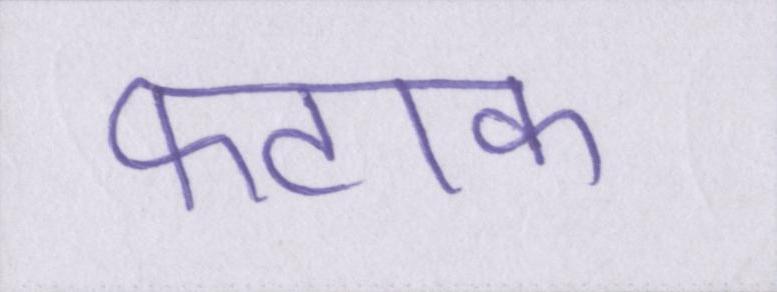 फटाक